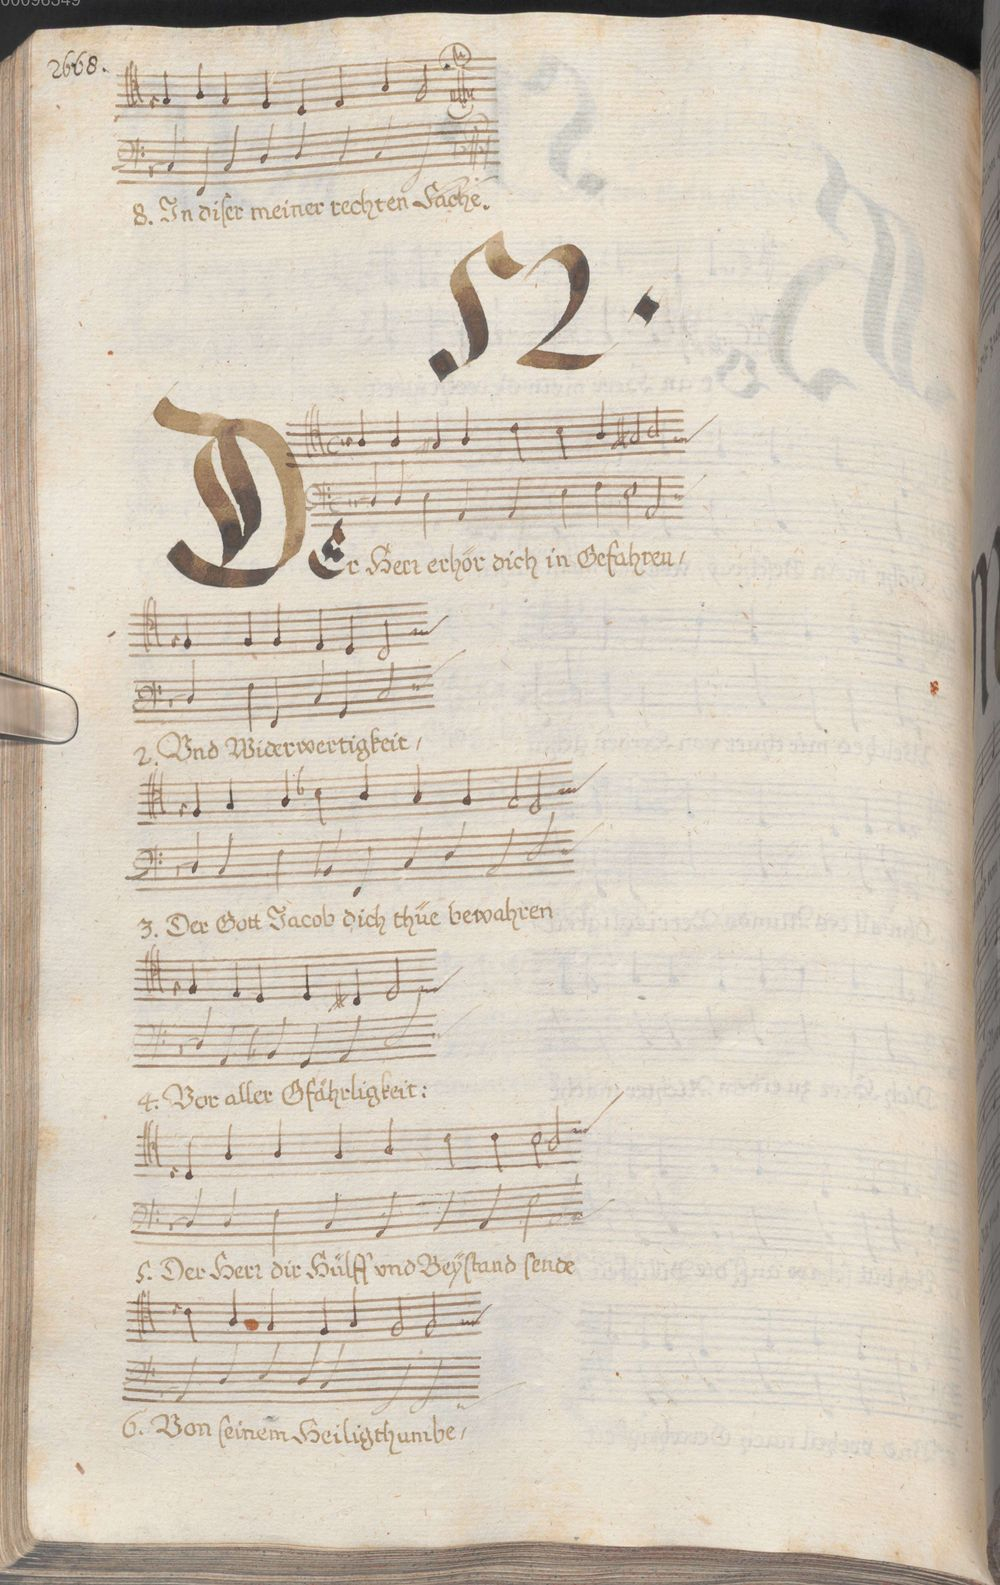 2668.
8. In diser meiner rechten Sache.
52.
DEr Herr erhör dich in Gefahren/
2. Vnd Widerwertigkeit/
3. Der Gott Jacob dich thüe bewahren
4. Vor aller Gfährligkeit:
5. Der Herr dir Hülff vnd Beÿstand sende
6. Von seinem Heiligthumbe/